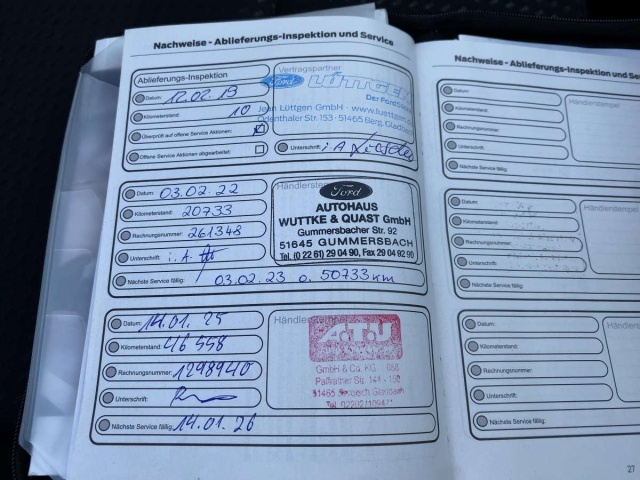 Nachweise - Ablieferungs-Inspektion und Service
Ablieferungs-Inspektion
Datum: 12.02.19
Kilometerstand: 10
Überprüft auf offene Service Aktionen:
Offene Service Aktionen abgearbeitet:
Vertragspartner
Ford LÜTTGEN
Jean Lüttgen GmbH · www.luettgen
Odenthaler Str. 153 · 51465 Berg. Gladbach
Unterschrift: i.A.
Datum: 03.02.22
Kilometerstand: 20733
Rechnungsnummer: 261348
Unterschrift: i.A.
Nächste Service fällig: 03.02.23 o. 50733 km
Händlerstempel
Ford
AUTOHAUS
WUTTKE & QUAST GmbH
Gummersbacher Str. 92
51645 GUMMERSBACH
Tel. (0 22 61) 29 04 90, Fax 29 04 92 90
Datum: 14.01.25
Kilometerstand: 46558
Rechnungsnummer: 1298940
Unterschrift:
Nächste Service fällig: 14.01.26
Händlerstempel
A.T.U
GmbH & Co. KG
Paffrather Str. 144 - 150
51465 Bergisch Gladbach
Nachweise - Ablieferungs-Inspektion und Se
Datum:
Kilometerstand:
Rechnungsnummer:
Unterschrift:
Nächste Service fällig:
Händlerstempel
Datum:
Kilometerstand:
Rechnungsnummer:
Unterschrift:
Nächste Service fällig:
Händlerstempel
Datum:
Kilometerstand:
Rechnungsnummer:
Unterschrift:
Nächste Service fällig:
Händlerstempel
27